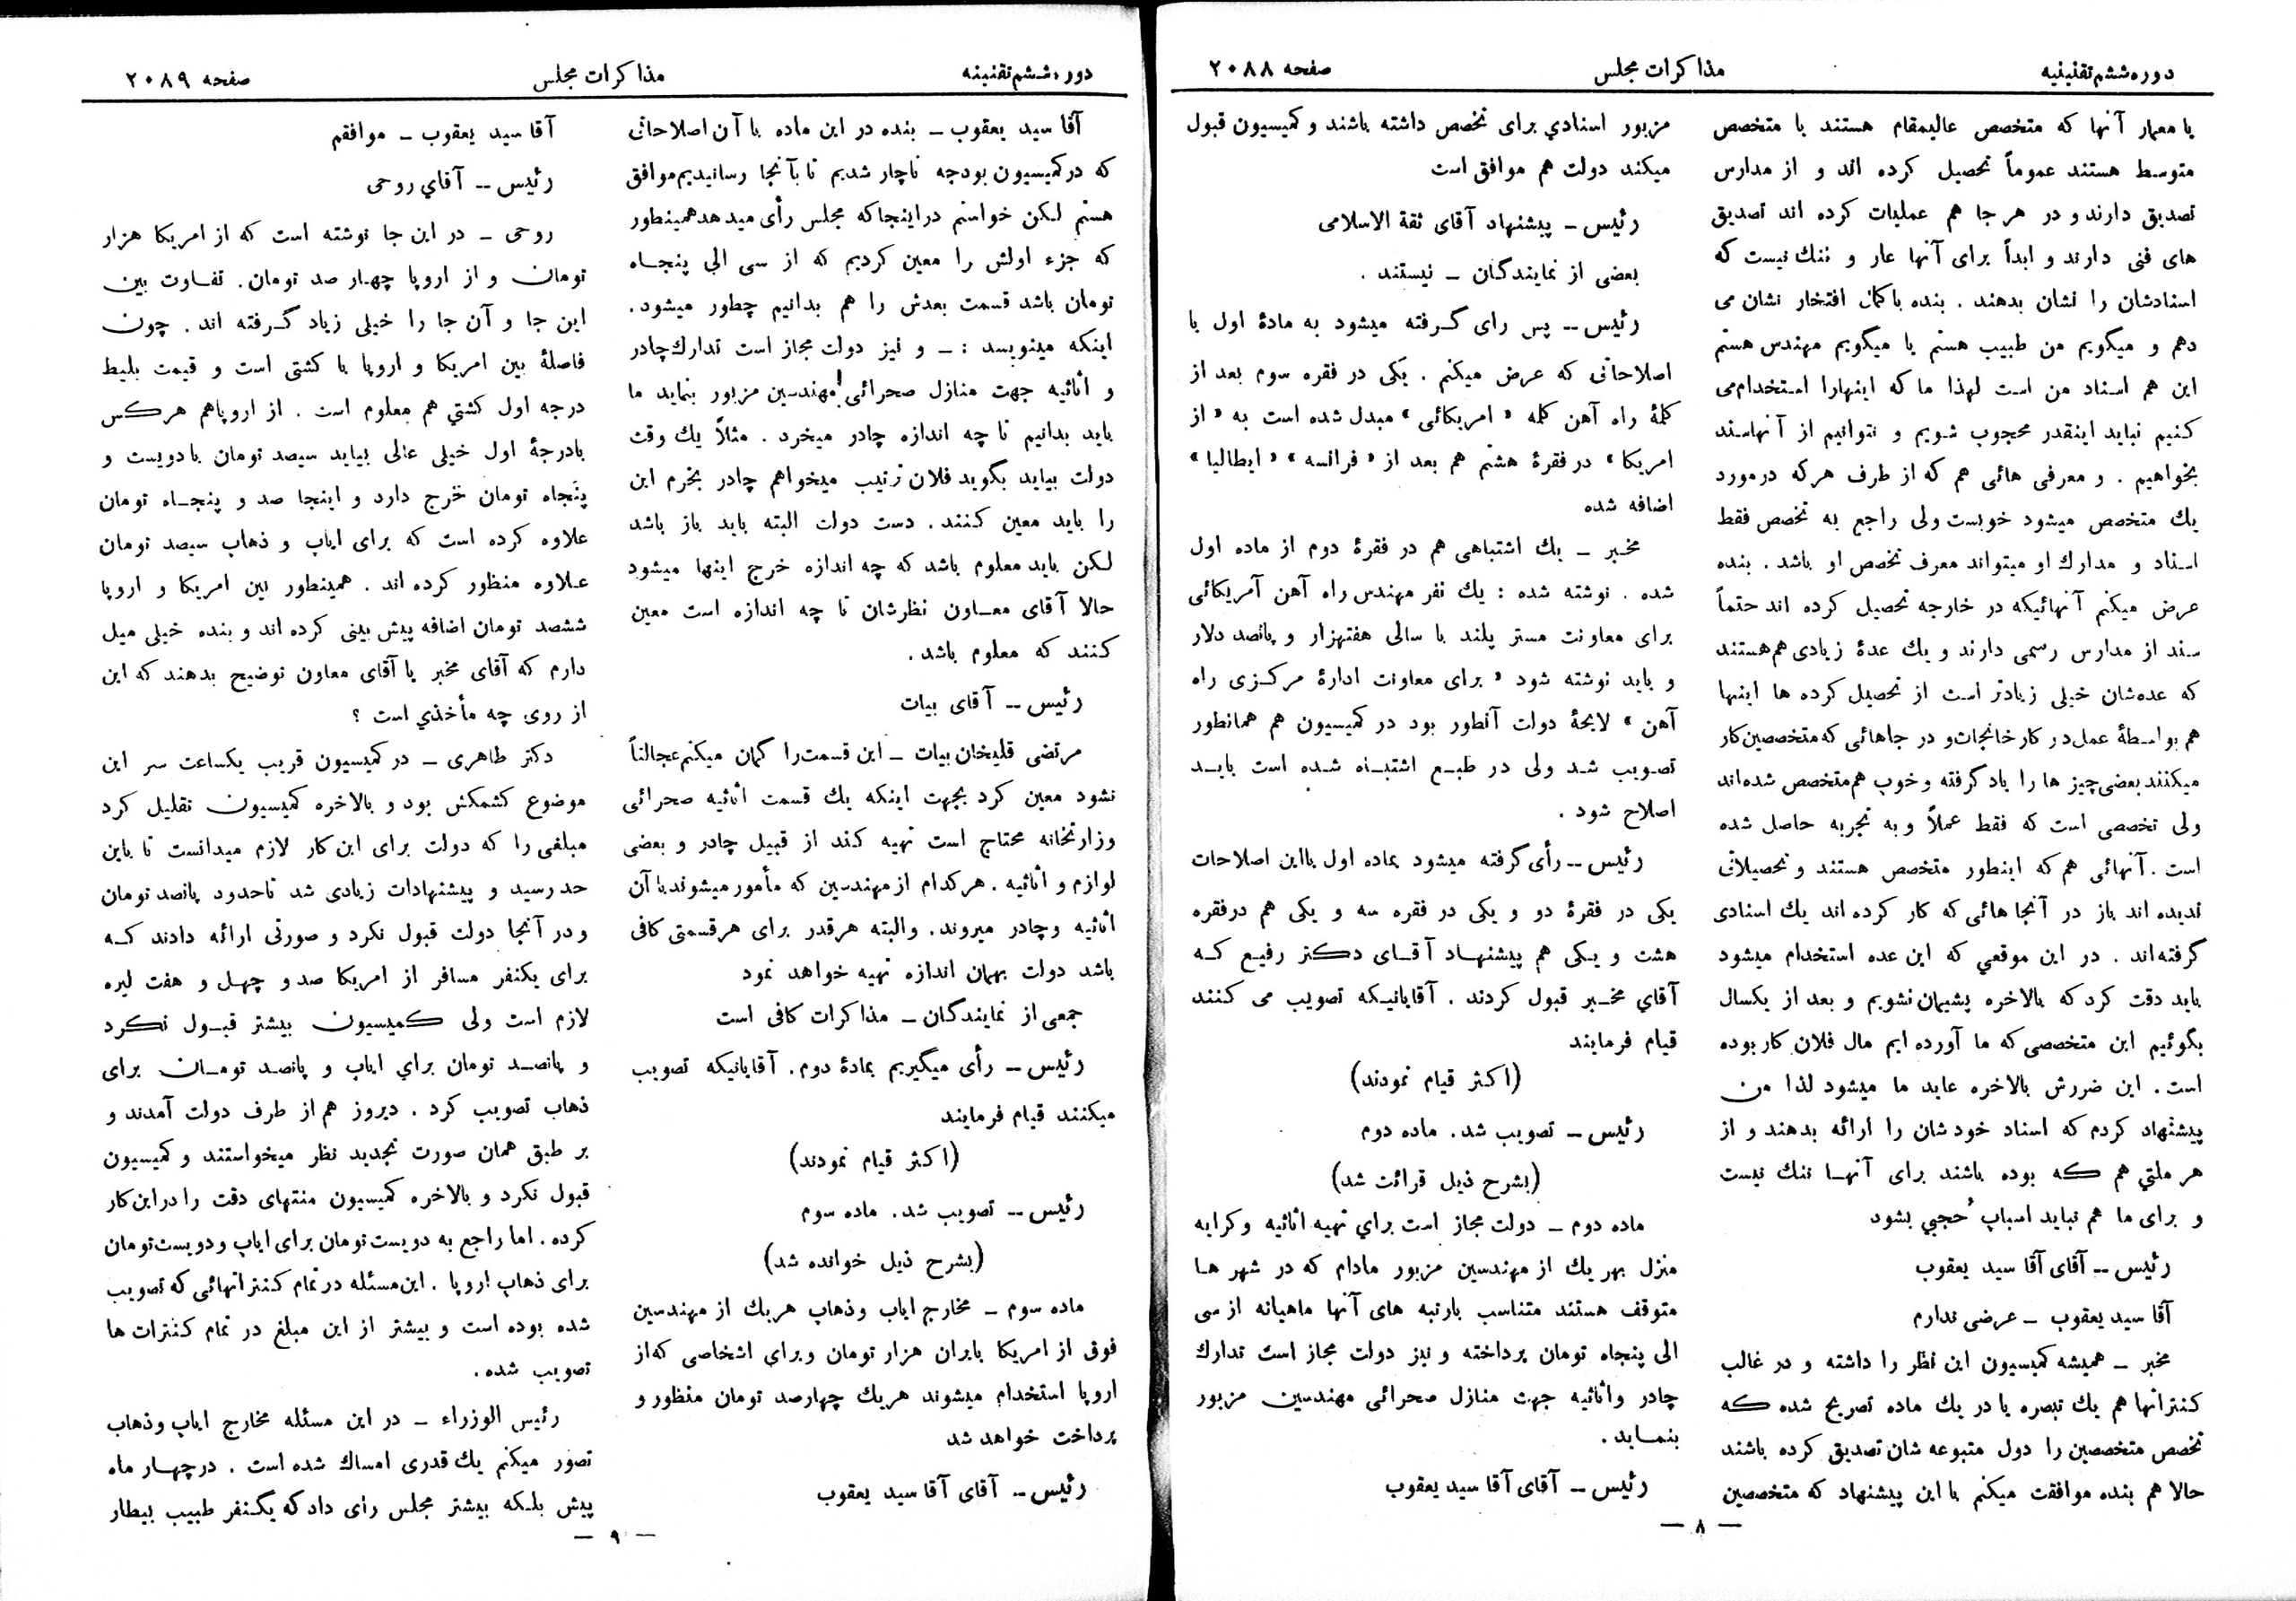 دوره ششم تقنینیه
مذاکرات مجلس
صفحه ۲۰۸۸
یا معمار آنها که متخصص عالیمقام هستند یا متخصص
متوسط هستند عموماً تحصیل کرده اند و از مدارس
تصدیق دارند و در هر جا هم عملیات کرده اند تصدیق
های فنی دارند و ابداً برای آنها عار و ننك نیست که
اسنادشان را نشان بدهند . بنده با کمال افتخار نشان می
دهم و میگویم من طبیب هستم یا میگویم مهندس هستم
این هم اسناد من است لهذا ما که اینهارا استخدام می
کنیم نباید اینقدر محجوب شویم و نتوانیم از آنهاسند
بخواهیم . و معرفی هائی هم که از طرف هر که در مورد
یك متخصص میشود خوبست ولی راجع به تخصص فقط
اسناد و مدارك او میتواند معرف تخصص او باشد . بنده
عرض میکنم آنهائیکه در خارجه تحصیل کرده اند حتماً
سند از مدارس رسمی دارند و یك عدهٔ زیادی هم هستند
که عده‌شان خیلی زیادتر است از تحصیل کرده ها اینها
هم بواسطهٔ عمل در کارخانجات و در جاهائی که متخصصین کار
میکنند بعضی چیز ها را یاد گرفته و خوب هم متخصص شده‌اند
ولی تخصصی است که فقط عملاً و به تجربه حاصل شده
است . آنهائی هم که اینطور متخصص هستند و تحصیلاتی
ندیده اند باز در آنجا هائی که کار کرده اند یك اسنادی
گرفته‌اند . در این موقعی که این عده استخدام میشود
باید دقت کرد که بالاخره پشیمان نشویم و بعد از یکسال
بگوئیم این متخصصی که ما آورده ایم مال فلان کار بوده
است . این ضررش بالاخره عاید ما میشود لذا من
پیشنهاد کردم که اسناد خودشان را ارائه بدهند و از
هر ملتی هم که بوده باشند برای آنها ننك نیست
و برای ما هم نباید اسباب حجبی بشود
رئیس -- آقای آقا سید یعقوب
آقا سید یعقوب - عرضی ندارم
مخبر - همیشه کمیسیون این نظر را داشته و در غالب
کنتراتها هم یك تبصره یا در یك ماده تصریح شده که
تخصص متخصصین را دول متبوعه شان تصدیق کرده باشند
حالا هم بنده موافقت میکنم با این پیشنهاد که متخصصین
مزبور اسنادي برای تخصص داشته باشند و کمیسیون قبول
میکند دولت هم موافق است
رئیس - پیشنهاد آقای ثقة الاسلامی
بعضی از نمایندگان - نیستند .
رئیس -- پس رای گرفته میشود به مادهٔ اول با
اصلاحاتی که عرض میکنم . یکی در فقره سوم بعد از
کلمهٔ راه آهن کلمه « امریکائی » مبدل شده است به « از
امریکا » در فقرهٔ هشتم هم بعد از « فرانسه » « ایطالیا »
اضافه شده
مخبر - یك اشتباهی هم در فقرهٔ دوم از ماده اول
شده . نوشته شده : یك نفر مهندس راه آهن آمریکائی
برای معاونت مستر پلند با سالی هفتهزار و پانصد دلار
و باید نوشته شود « برای معاونت ادارهٔ مرکزی راه
آهن » لایحهٔ دولت آنطور بود در کمیسیون هم همانطور
تصویب شد ولی در طبع اشتباه شده است باید
اصلاح شود .
رئیس -- رأی گرفته میشود بماده اول بااین اصلاحات
یکی در فقرهٔ دو و یکی در فقره سه و یکی هم در فقره
هشت و یکی هم پیشنهاد آقای دکتر رفیع که
آقای مخبر قبول کردند . آقایانیکه تصویب می کنند
قیام فرمایند
(اکثر قیام نمودند)
رئیس - تصویب شد . ماده دوم
(بشرح ذیل قرائت شد)
ماده دوم - دولت مجاز است براي تهیه اثاثیه و کرایه
منزل بهر یك از مهندسین مزبور مادام که در شهر ها
متوقف هستند متناسب بارتبه های آنها ماهیانه از سی
الی پنجاه تومان پرداخته و نیز دولت مجاز است تدارك
چادر واثاثیه جهت منازل صحرائی مهندسین مزبور
بنماید .
رئیس -- آقای آقا سید یعقوب
— ۸ —
دوره ششم تقنینه
مذاکرات مجلس
صفحه ۲۰۸۹
آقا سید یعقوب - بنده در این ماده با آن اصلاحاتی
که در کمیسیون بودجه ناچار شدیم تا بآنجا رسانیدیم موافق
هستم لکن خواستم در اینجا که مجلس رأی میدهد همینطور
که جزء اولش را معین کردیم که از سی الی پنجاه
تومان باشد قسمت بعدش را هم بدانیم چطور میشود .
اینکه مینویسد : - و نیز دولت مجاز است تدارك چادر
و اثاثیه جهت منازل صحرائی مهندسین مزبور بنماید ما
باید بدانیم تا چه اندازه چادر میخرد . مثلاً یك وقت
دولت بیاید بگوید فلان ترتیب میخواهم چادر بخرم این
را باید معین کنند . دست دولت البته باید باز باشد
لکن باید معلوم باشد که چه اندازه خرج اینها میشود
حالا آقای معاون نظرشان تا چه اندازه است معین
کنند که معلوم باشد .
رئیس -- آقای بیات
مرتضی قلیخان بیات - این قسمت را گمان میکنم عجالتاً
نشود معین کرد بجهت اینکه یك قسمت اثاثیه صحرائی
وزارتخانه محتاج است تهیه کند از قبیل چادر و بعضی
لوازم و اثاثیه . هر کدام از مهندسین که مأمور میشوند با آن
اثاثیه وچادر میروند . والبته هرقدر برای هرقسمتی کافی
باشد دولت بهمان اندازه تهیه خواهد نمود
جمعی از نمایندگان - مذاکرات کافی است
رئیس -- رأی میگیریم بمادهٔ دوم . آقایانیکه تصویب
میکنند قیام فرمایند
(اکثر قیام نمودند)
رئیس -- تصویب شد . ماده سوم
(بشرح ذیل خوانده شد)
ماده سوم - مخارج ایاب وذهاب هریك از مهندسین
فوق از امریکا بایران هزار تومان وبرای اشخاصی که از
اروپا استخدام میشوند هریك چهارصد تومان منظور و
پرداخت خواهد شد
رئیس -- آقای آقا سید یعقوب
آقا سید یعقوب - موافقم
رئیس -- آقاي روحی
روحی - در این جا نوشته است که از امریکا هزار
تومان و از اروپا چهار صد تومان . تفاوت بین
این جا و آن جا را خیلی زیاد گرفته اند . چون
فاصلهٔ بین امریکا و اروپا با کشتی است و قیمت بلیط
درجه اول کشتی هم معلوم است . از اروپاهم هرکس
بادرجهٔ اول خیلی عالی بیاید سیصد تومان یا دویست و
پنجاه تومان خرج دارد و اینجا صد و پنجاه تومان
علاوه کرده است که برای ایاب و ذهاب سیصد تومان
علاوه منظور کرده اند . همینطور بین امریکا و اروپا
ششصد تومان اضافه پیش بینی کرده اند و بنده خیلی میل
دارم که آقای مخبر یا آقای معاون توضیح بدهند که این
از روی چه مأخذي است ؟
دکتر طاهری - در کمیسیون قریب یکساعت سر این
موضوع کشمکش بود و بالاخره کمیسیون تقلیل کرد
مبلغی را که دولت برای این کار لازم میدانست تا باین
حد رسید و پیشنهادات زیادی شد تاحدود پانصد تومان
و در آنجا دولت قبول نکرد و صورتی ارائه دادند که
برای یکنفر مسافر از امریکا صد و چهل و هفت لیره
لازم است ولی کمیسیون بیشتر قبول نکرد
و پانصد تومان براي ایاب و پانصد تومان برای
ذهاب تصویب کرد . دیروز هم از طرف دولت آمدند و
بر طبق همان صورت تجدید نظر میخواستند و کمیسیون
قبول نکرد و بالاخره کمیسیون منتهای دقت را در این کار
کرده . اما راجع به دویست تومان برای ایاب و دویست تومان
برای ذهاب اروپا . این مسئله در تمام کنتراتهائی که تصویب
شده بوده است و بیشتر از این مبلغ در تمام کنترات ها
تصویب شده .
رئیس الوزراء - در این مسئله مخارج ایاب وذهاب
تصور میکنم یك قدری امساك شده است . درچهار ماه
پیش بلکه بیشتر مجلس رأی داد که یکنفر طبیب بیطار
— ۹ —